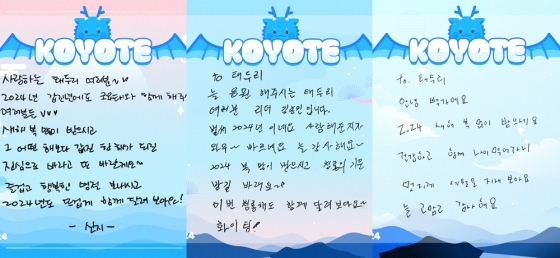 KOYOTE
사랑하는 태두리 여러분~~
2024년 갑진년에도 코요태와 함께 해줘
여러분들 ♥♥♥
새해 복 많이 받으시고
그 어떤 해보다 값진 한 해가 되길
진심으로 바라고 또 바랄게요~
즐겁고 행복한 명절 보내시고
2024년도 뜨겁게 함께 달려 보아요!
- 신지 -
KOYOTE
to 태두리
늘 응원 해주시는 태두리
여러분 리더 김종민입니다.
벌써 2024년 이네요
바르네요 늘 감사해요~
2024 복 많이 받으시고 청룡의 기운
받길 바래요~
이번 청룡해도 함께 달려보아요~
화이팅!
KOYOTE
to. 태두리
안녕 빽가예요
2024 새해 복 많이 받으시구
건강하고 행복
멋지게 새해를 지내 보아요
늘 고맙고 감사해요